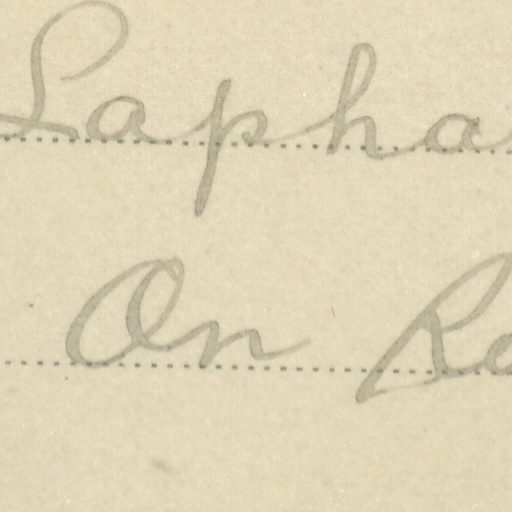 Lapha
On Re